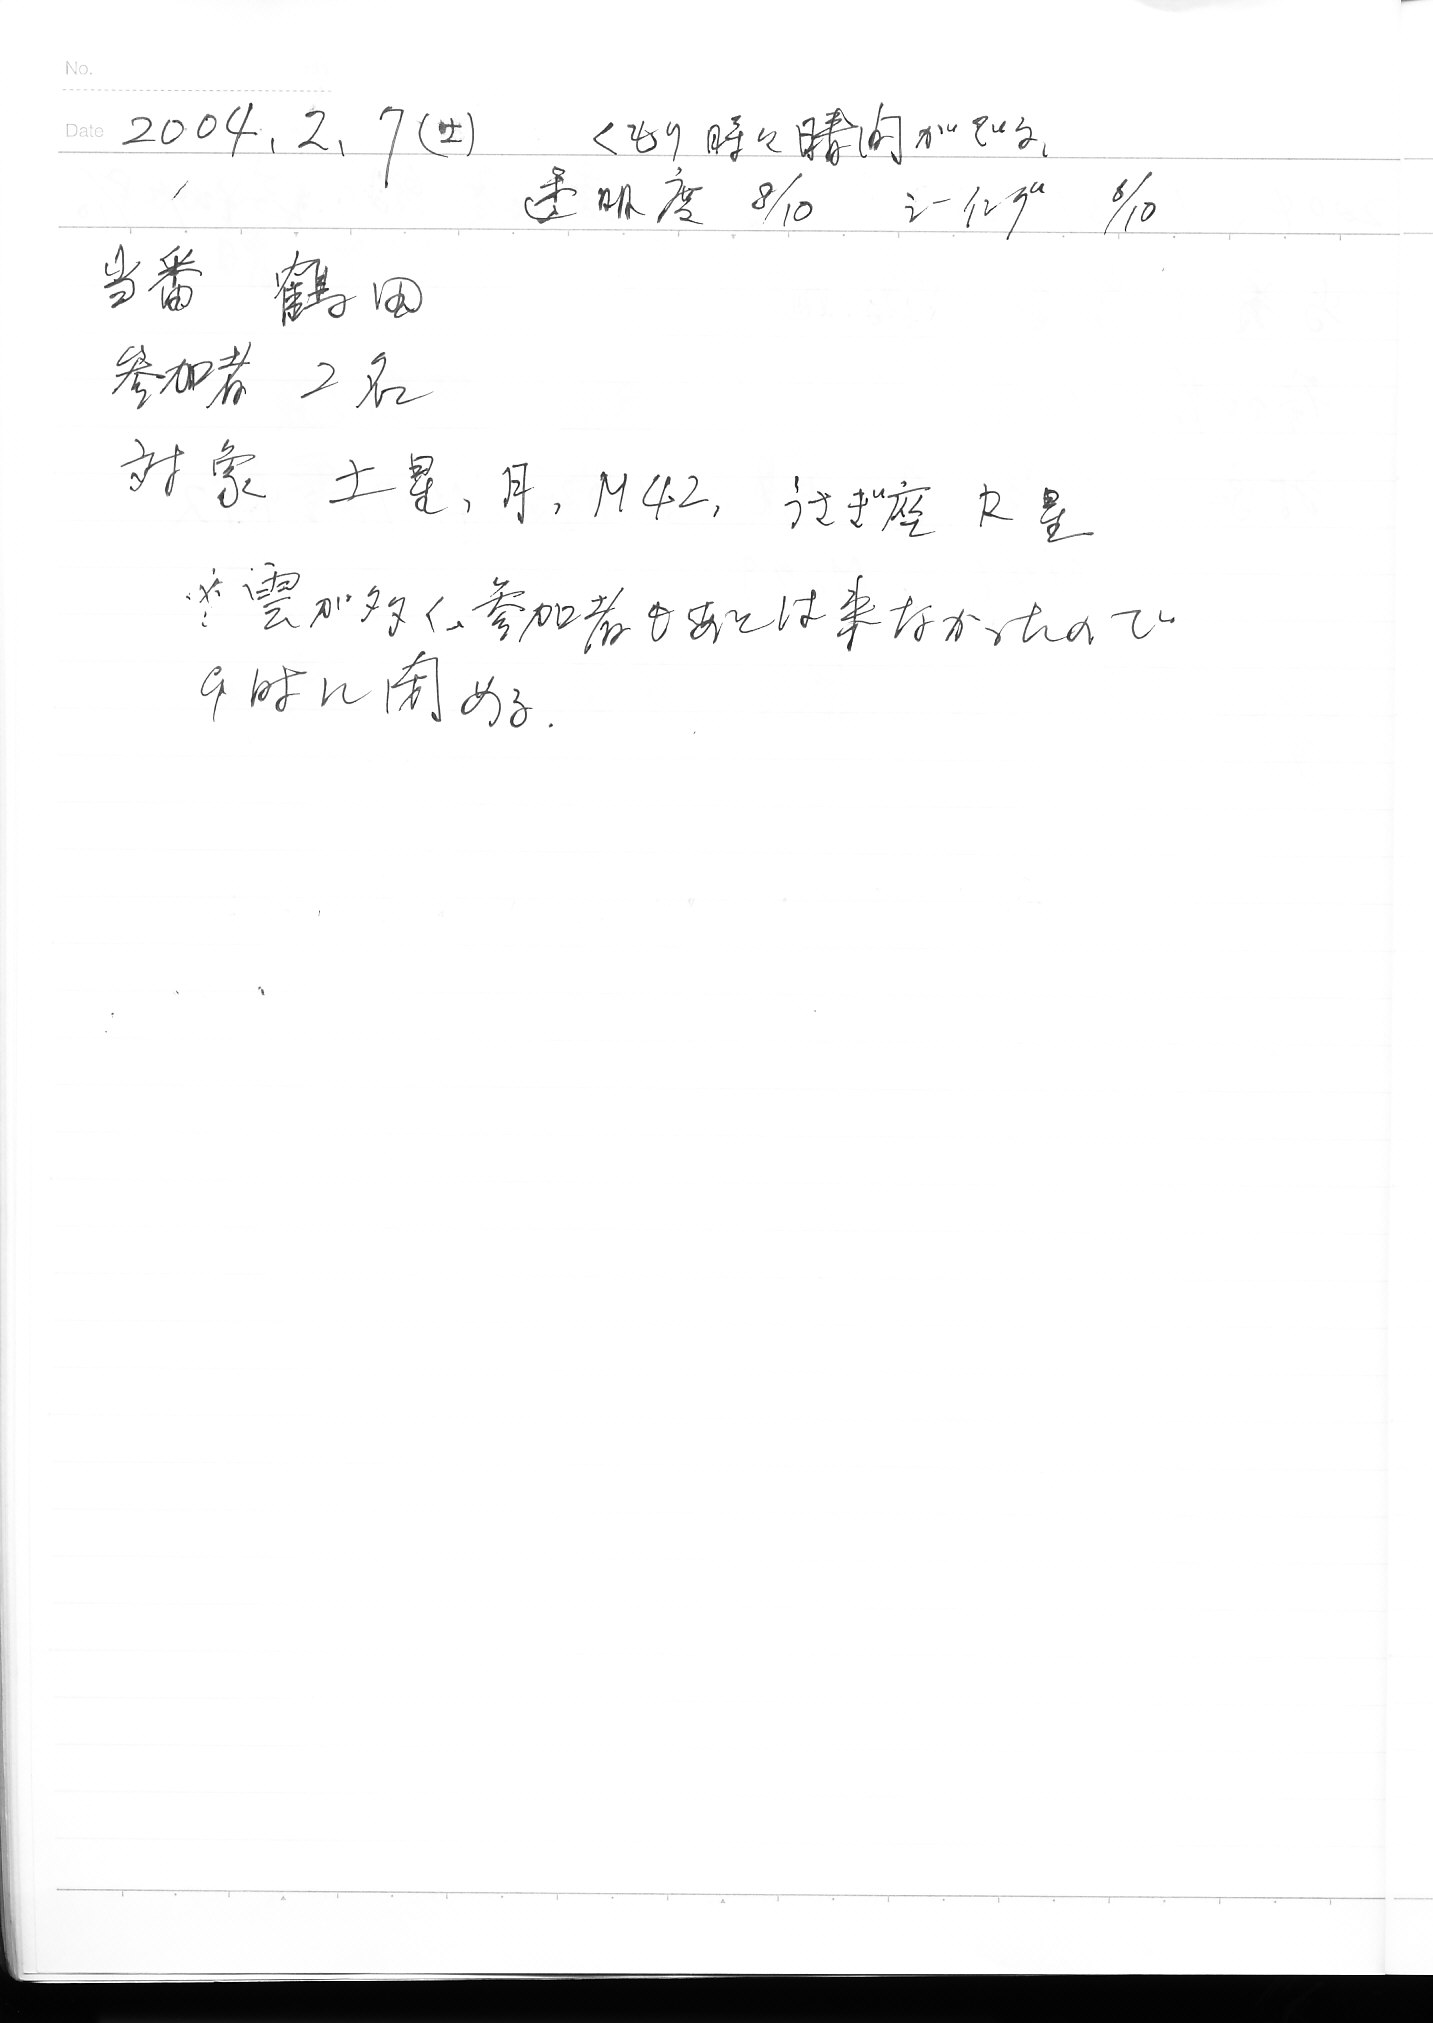 No.
Date 2004. 2. 7 (土) くもり時々晴間がでる。
透明度 8/10 シーイング 6/10
当番 鶴田
参加者 2名
対象 土星、月、M42、うさぎ座 R星
※雲が多く、参加者もあとは来なかったので
9時に閉める.